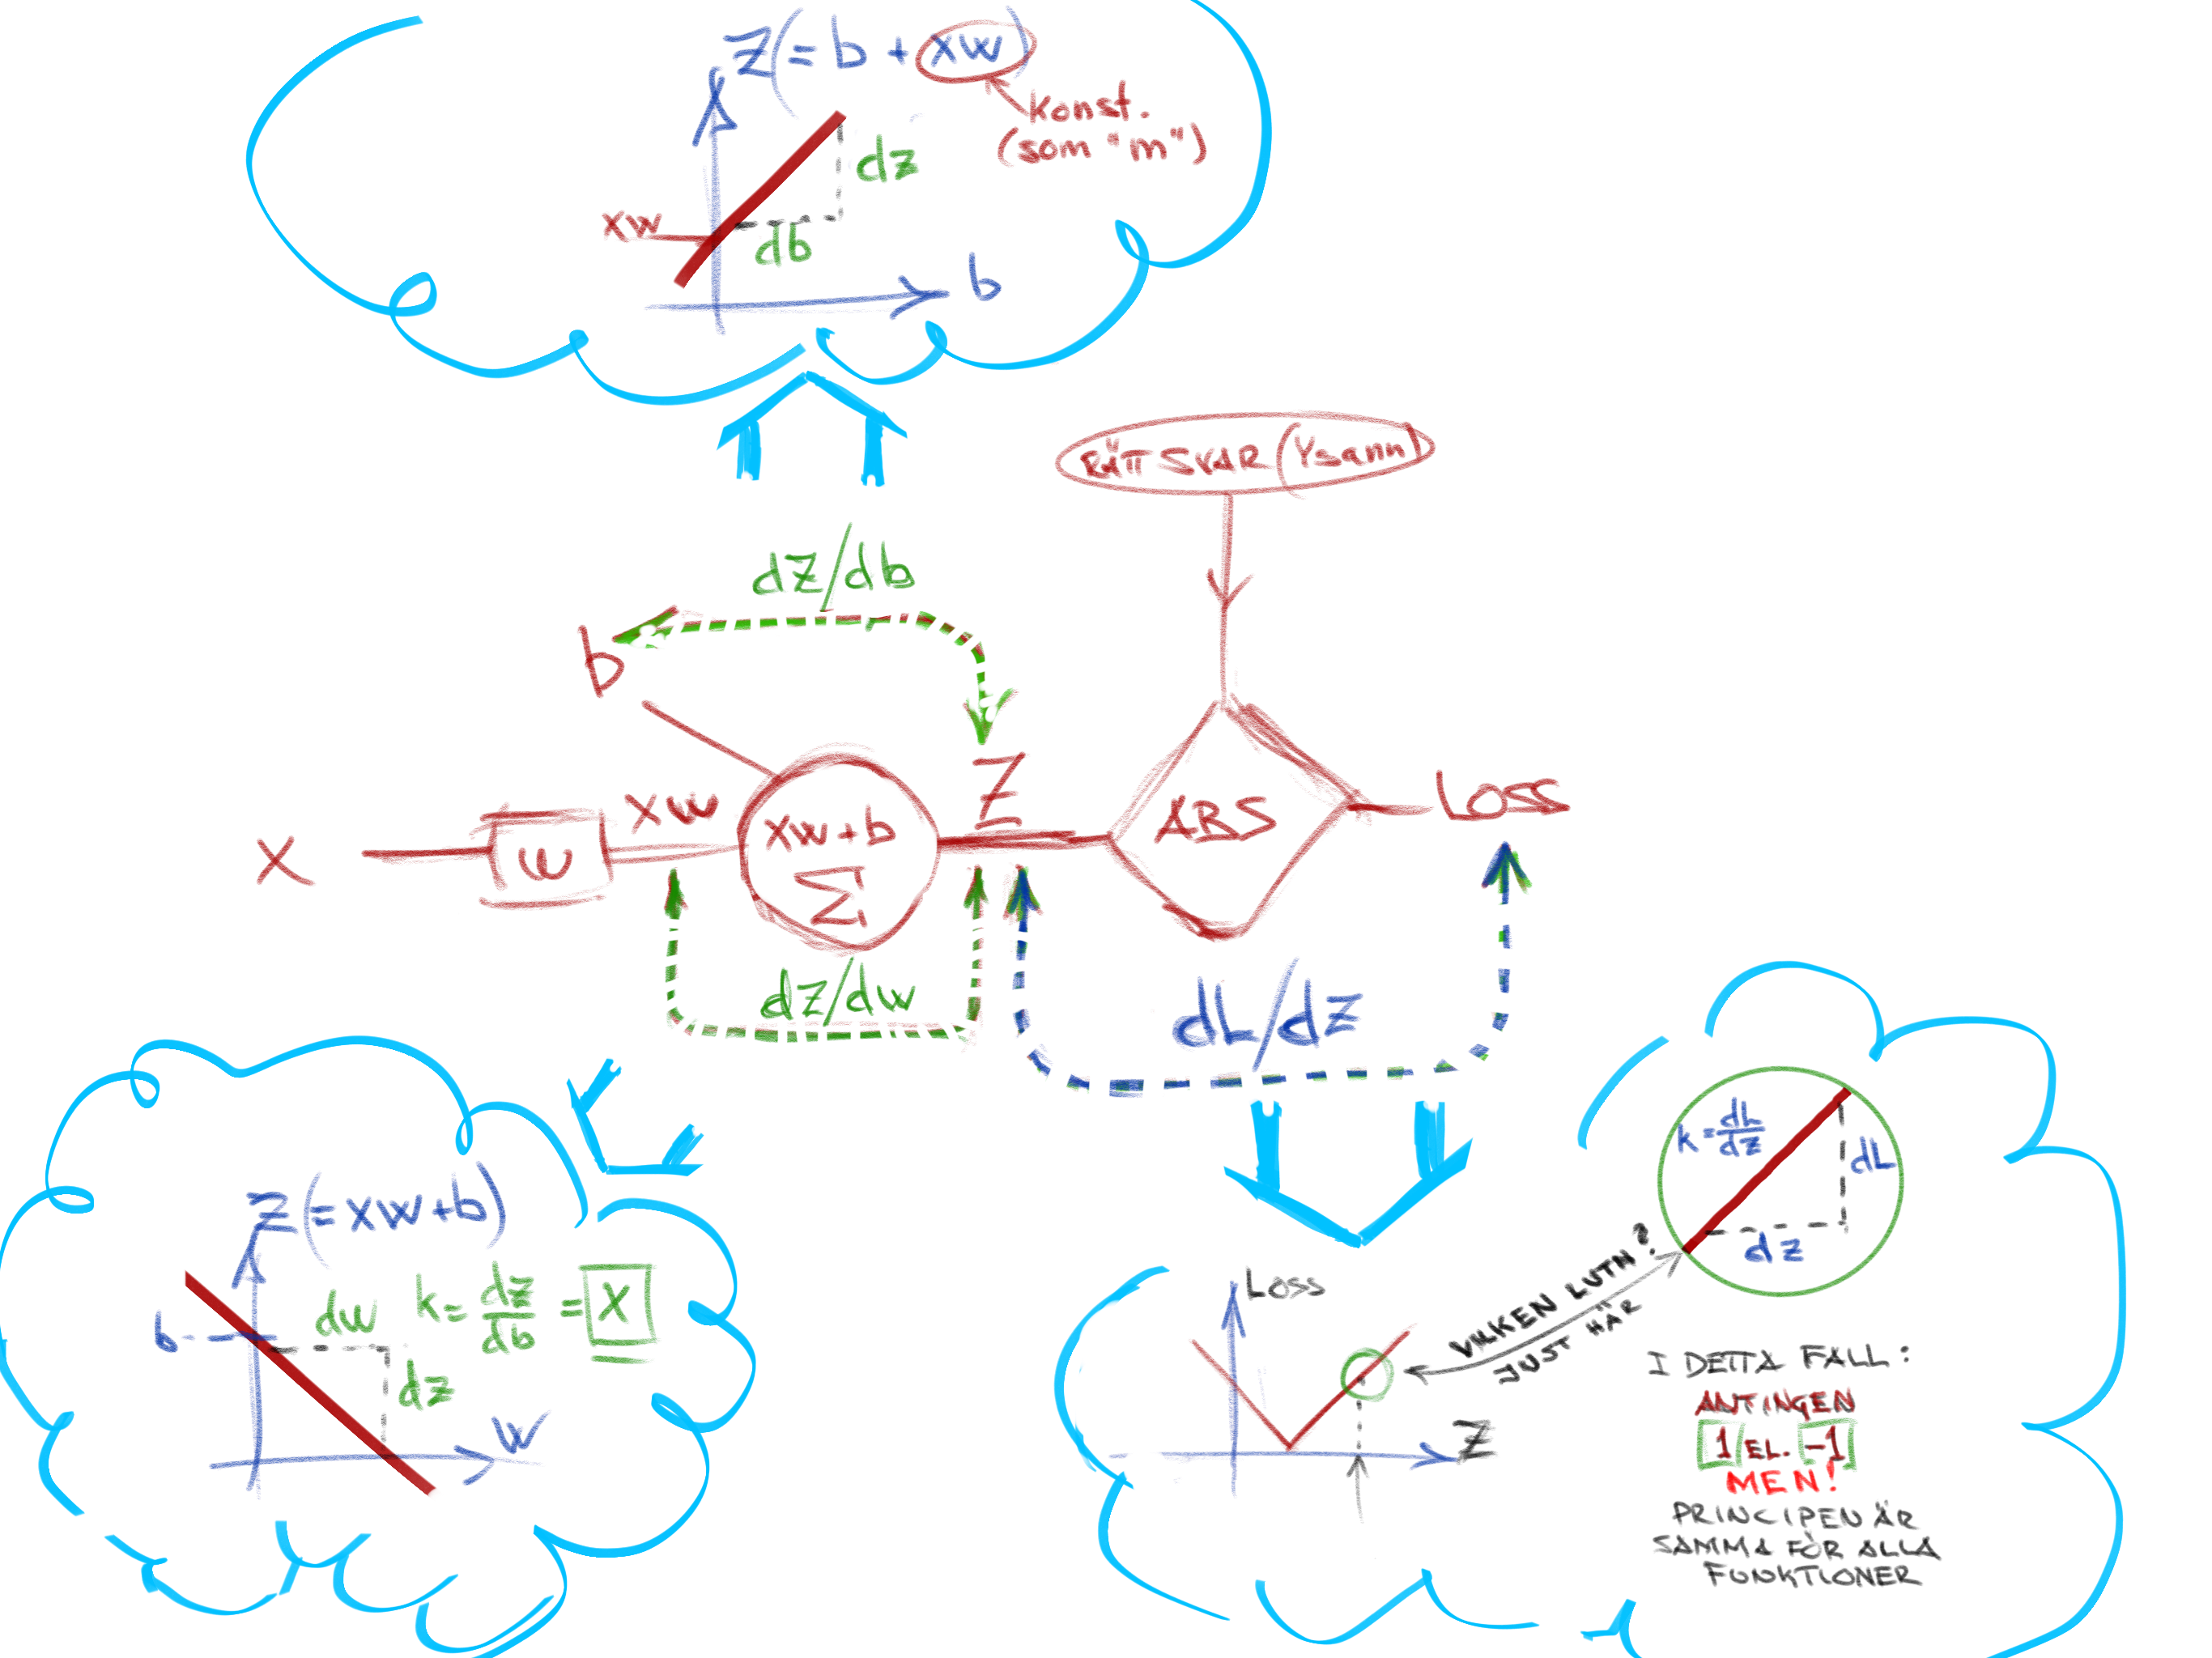 Z(= b + xw)
konst.
(som "m")
dz
xw
db
b
RÄTT SVAR (Ysann)
dz/db
b
x
w
xw
xw+b
Σ
Z
ABS
Loss
dz/dw
dL/dz
Z(= xw+b)
b
dw
k= dz/db = x
dz
w
Loss
Z
VILKEN LUTN?
JUST HÄR
k= dL/dz
dL
dz
I DETTA FALL:
ANTINGEN
1 EL. -1
MEN!
PRINCIPEN ÄR
SAMMA FÖR ALLA
FUNKTIONER